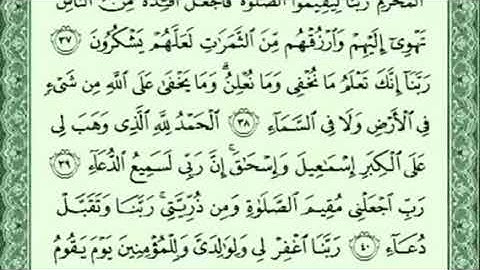 ٱلْمُحَرَّمِ رَبَّنَا لِيُقِيمُوا۟ ٱلصَّلَوٰةَ فَٱجْعَلْ أَفْـِٔدَةً مِّنَ ٱلنَّاسِ
تَهْوِىٓ إِلَيْهِمْ وَٱرْزُقْهُم مِّنَ ٱلثَّمَرَٰتِ لَعَلَّهُمْ يَشْكُرُونَ ٣٧
رَبَّنَآ إِنَّكَ تَعْلَمُ مَا نُخْفِى وَمَا نُعْلِنُ ۗ وَمَا يَخْفَىٰ عَلَى ٱللَّهِ مِن شَىْءٍ
فِى ٱلْأَرْضِ وَلَا فِى ٱلسَّمَآءِ ٣٨ ٱلْحَمْدُ لِلَّهِ ٱلَّذِى وَهَبَ لِى
عَلَى ٱلْكِبَرِ إِسْمَٰعِيلَ وَإِسْحَٰقَ ۚ إِنَّ رَبِّى لَسَمِيعُ ٱلدُّعَآءِ ٣٩
رَبِّ ٱجْعَلْنِى مُقِيمَ ٱلصَّلَوٰةِ وَمِن ذُرِّيَّتِى ۚ رَبَّنَا وَتَقَبَّلْ
دُعَآءِ ٤٠ رَبَّنَا ٱغْفِرْ لِى وَلِوَٰلِدَىَّ وَلِلْمُؤْمِنِينَ يَوْمَ يَقُومُ